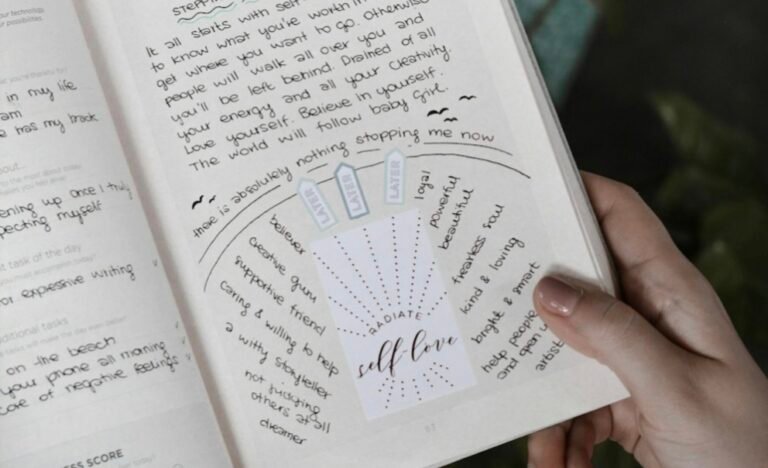 your technology
your possibilities.
in my life
am
e has my back
about...
ening up once I truly
pecting myself
st task of the day
or expressive writing
ditional tasks
on the beach
your phone all morning
care of negative feelings
SS SCORE
It all starts with self
to know what you're worth in
get where you want to go. Otherwise
people will walk all over you and
you'll be left behind. Drained of all
your energy and all your creativity.
Love yourself. Believe in yourself.
The world will follow baby girl.
there is absolutely nothing stopping me now
LATER
LATER
LATER
believer
creative guru
supportive friend
caring & willing to help
a witty storyteller
not judging
others at all
dreamer
RADIATE
self-love
loyal
powerful
beautiful
fearless soul
kind & loving
bright & smart
help people
and open u
artist